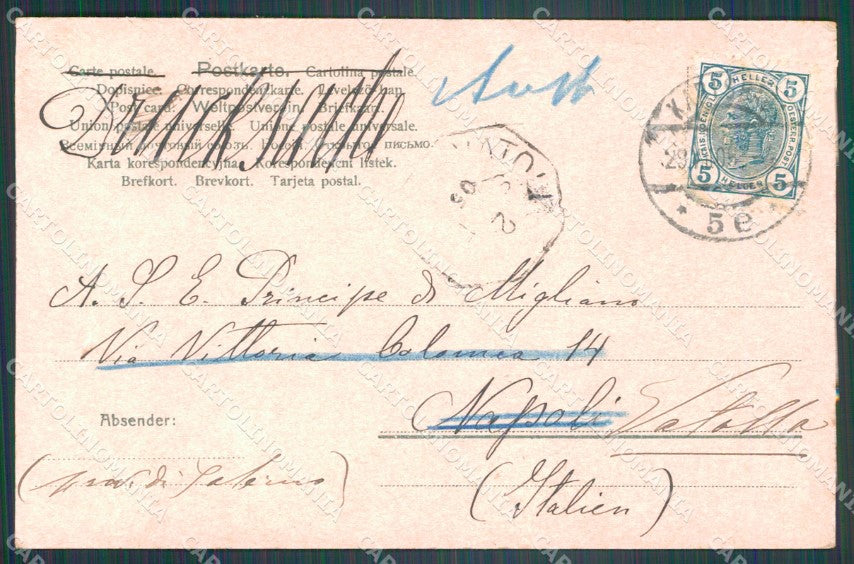 Carte postale. Postkarte. Cartolina postale.
Dopisnice. Correspondenzkarte. Levelező-lap.
Post card. Weltpostverein. Briefkaart.
Union postale universelle. Unione postale universale.
Всемірный почтовый союзъ. Россія. Открытое письмо.
Karta korespondencyjna. Korespondenční listek.
Brefkort. Brevkort. Tarjeta postal.
Drucksache
5 HELLER 5
5 HELLER 5
29
* 5e *
A. S. E. Principe di Migliano
Via Vittoria Colonna 14
Napoli Vatolla
Absender:
(prov. di Salerno)
(Italien)
CARTOLINOMANIA